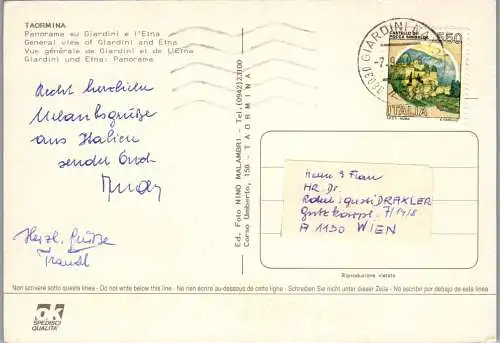 TAORMINA
Panorama su Giardini e l'Etna
General view of Giardini and Etna
Vue générale de Giardini et de L'Etna
Giardini und Etna: Panorama
Recht herzliche
Urlaubsgrüße
aus Italien
sendet Euch
Herzl. Grüße
Traudl
Ed. Foto NINO MALAMBRI - Tel. (0942)23100
Corso Umberto, 158 - TAORMINA
98030 GIARDINI
CASTELLO DI
ROCCA SINIBALDA
550
ITALIA
Herrn & Frau
HR. Dr.
DRAXLER
7/14/8
A 1190 WIEN
Riproduzione vietata
Non scrivere sotto questa linea - Do not write below this line - Ne rien écrire au-dessous de cette ligne - Schreiben Sie nicht unter dieser Zeile - No escribir por debajo de esta línea
ok
SPEDISCI
QUALITÀ